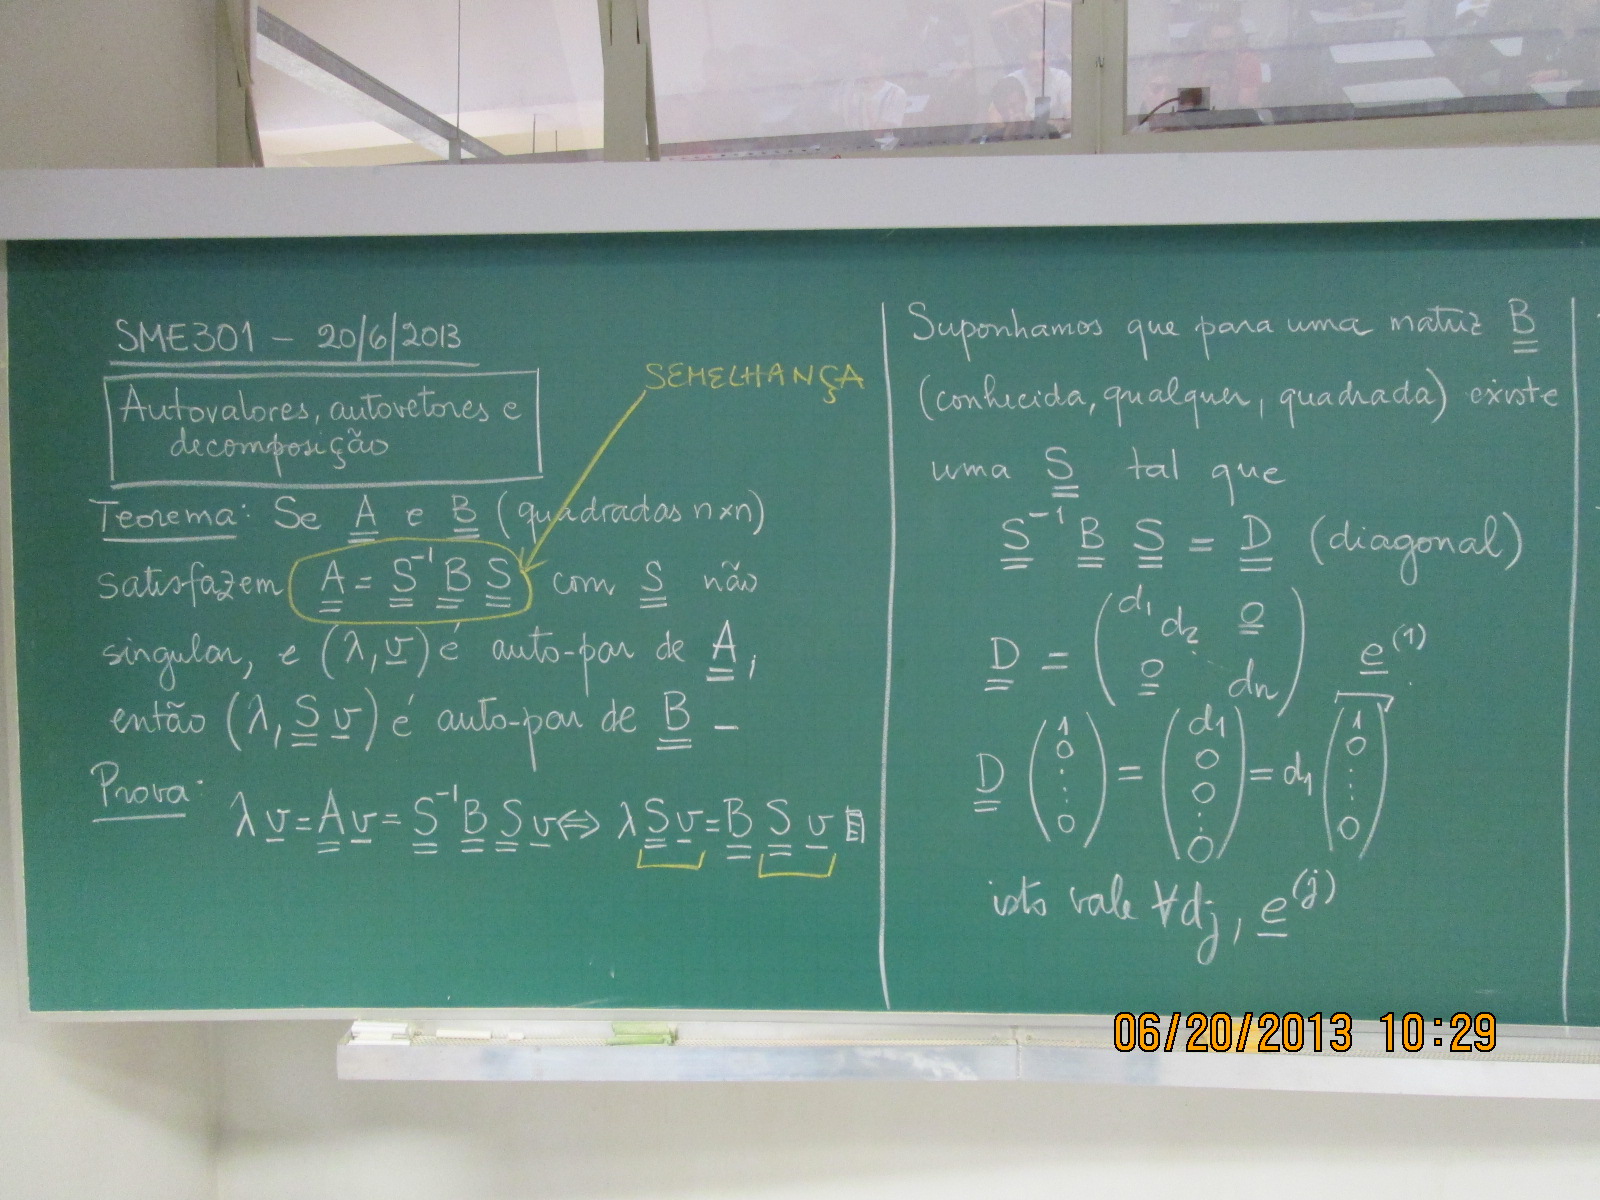 SME301 - 20/6/2013
Autovalores, autovetores e
decomposição
SEMELHANÇA
Teorema: Se A e B (quadradas n×n)
satisfazem A = S⁻¹ B S com S não
singular, e (λ, v) é auto-par de A,
então (λ, S v) é auto-par de B -
Prova:
λ v = A v = S⁻¹ B S v ⇔ λ S v = B S v
Suponhamos que para uma matriz B
(conhecida, qualquer, quadrada) existe
uma S tal que
S⁻¹ B S = D (diagonal)
D = (d₁ d₂ 0 0 dn)
e⁽¹⁾
D (1 0 ⋮ 0) = (d₁ 0 0 ⋮ 0) = d₁ (1 0 ⋮ 0)
isto vale ∀ dj, e⁽ʲ⁾
06/20/2013 10:29